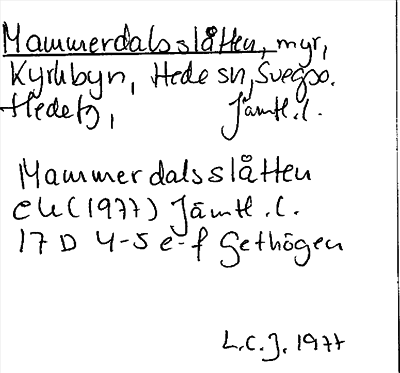 Mammerdalsslåtten, myr,
Kyrkbyn, Hede sn, Svegso.
Hede tg, Jämtl. l.
Mammerdalsslåtten
ek (1977) Jämtl. l.
17 D 4-5 e-f Gethögen
L.C.J. 1977